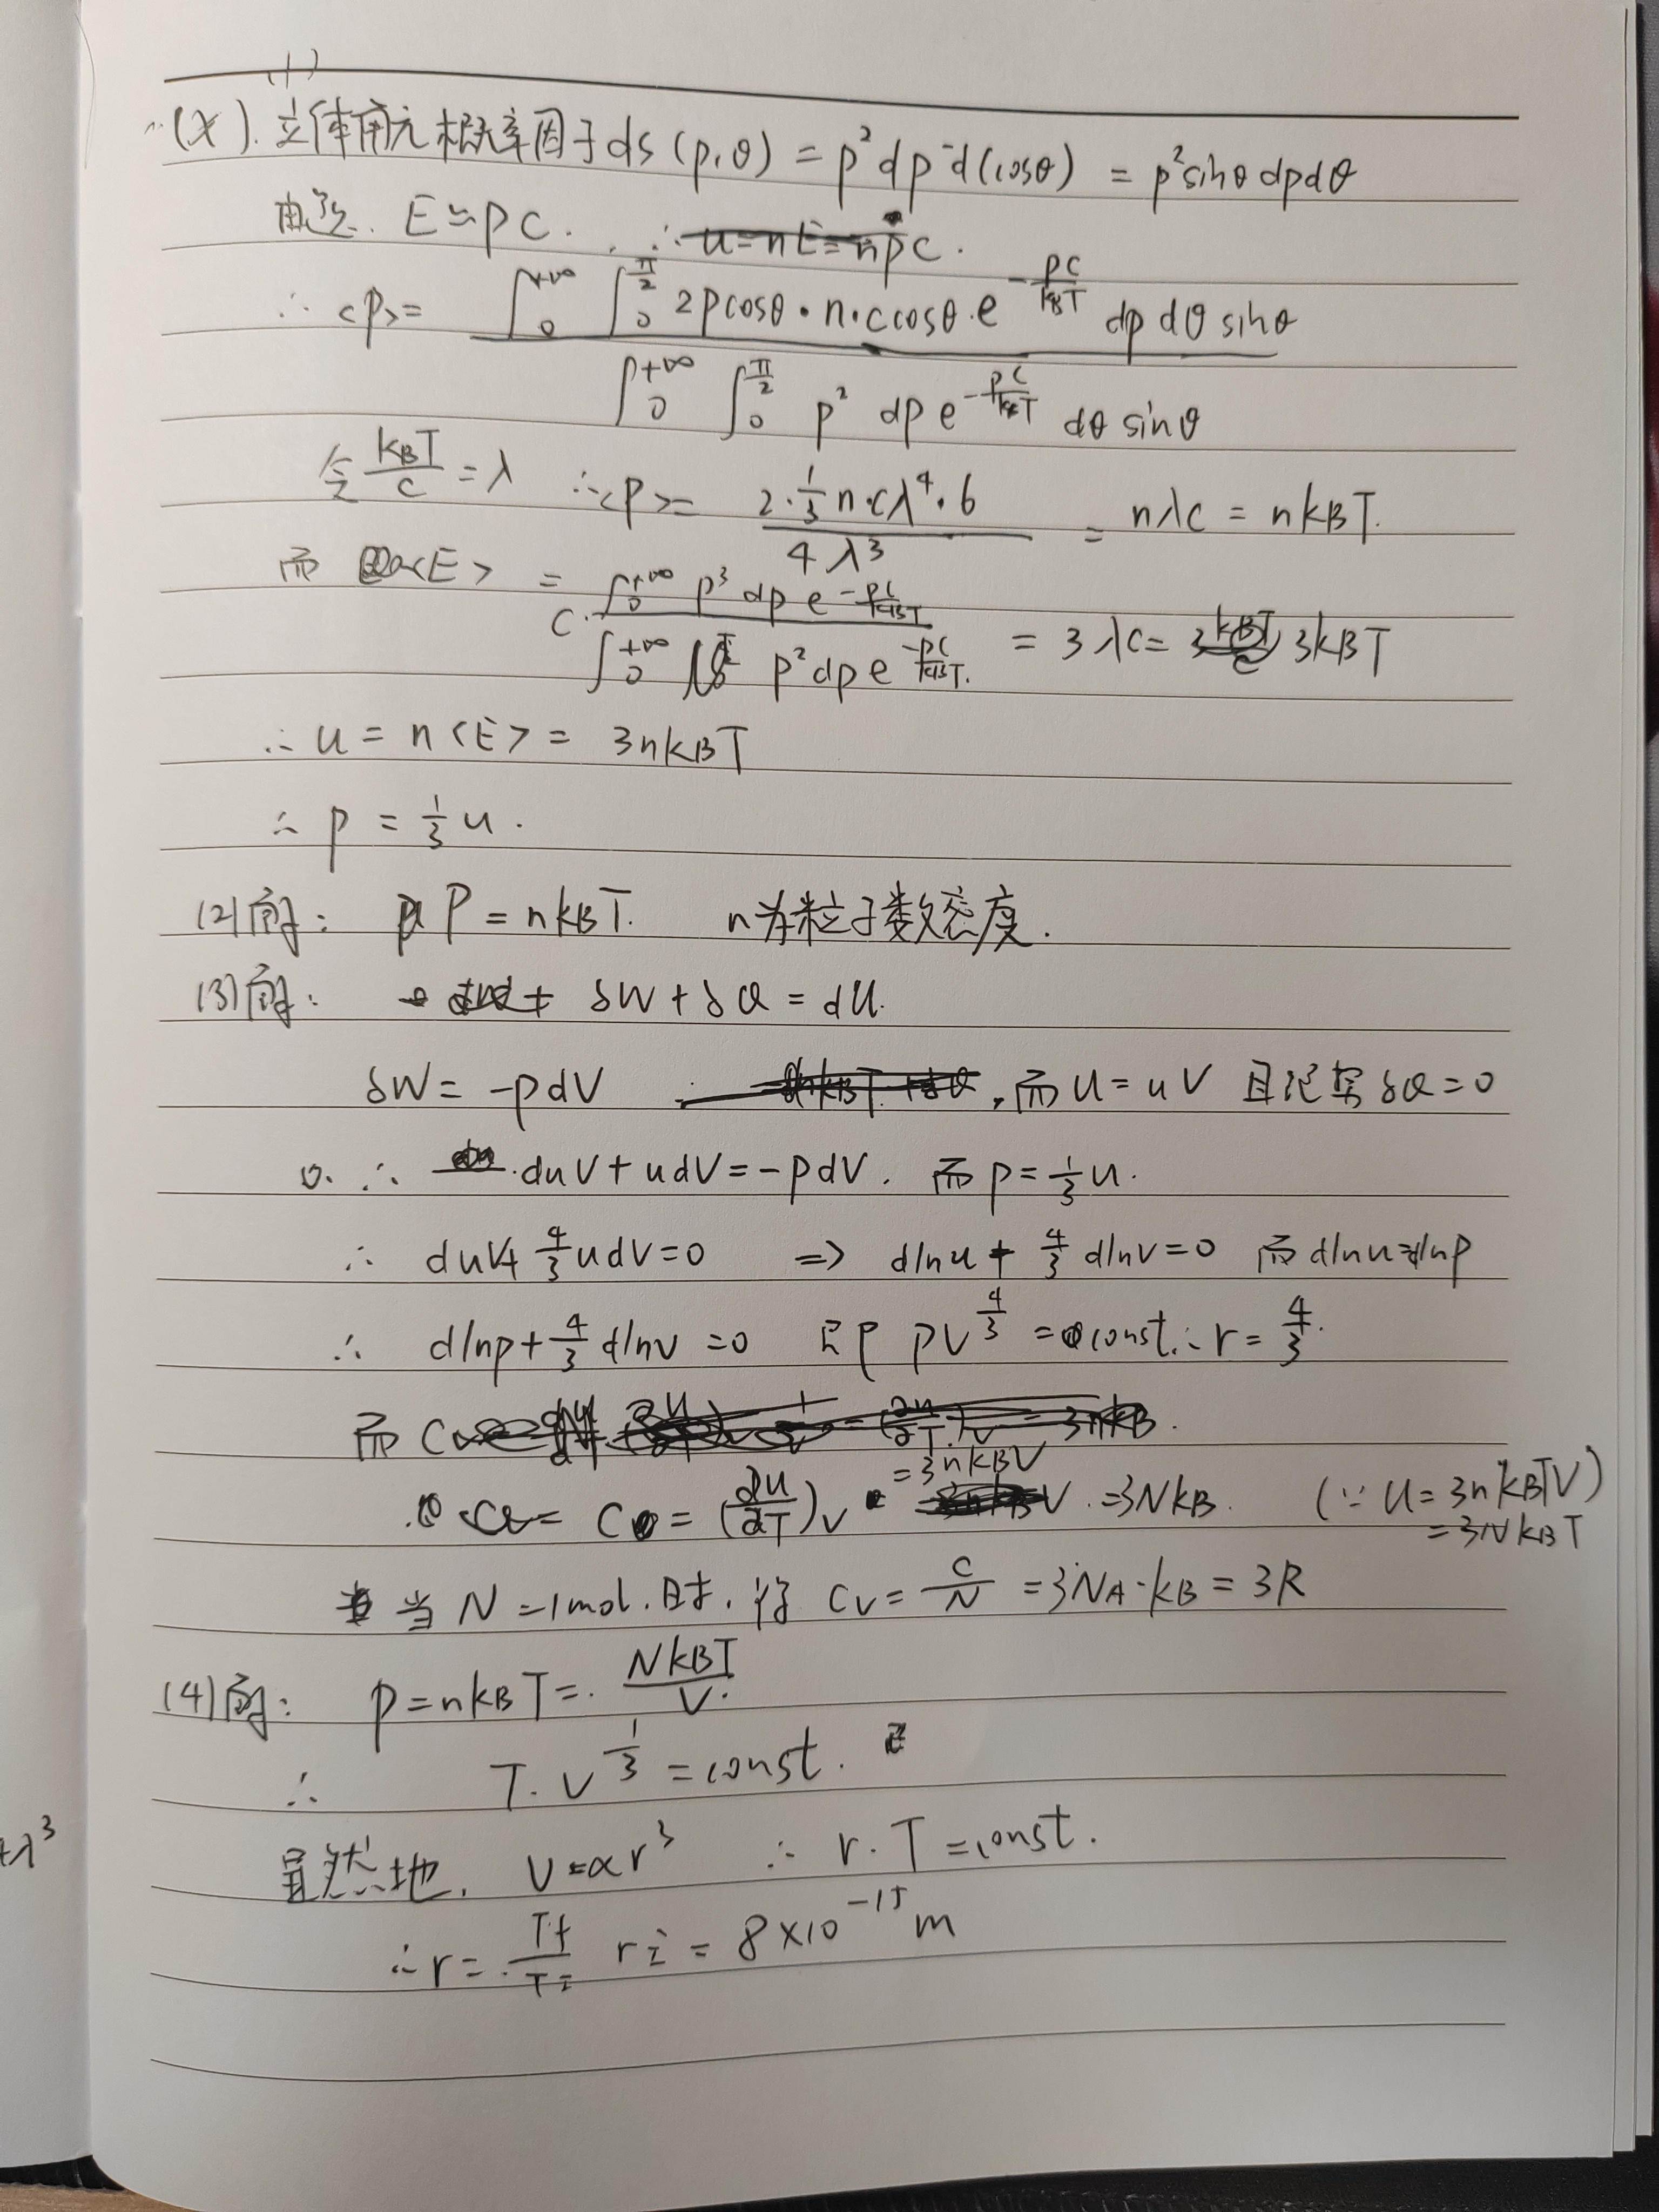 (1)
(X). 立体角元概率因子 ds(p,θ) = p²dp d(cosθ) = p²sinθ dpdθ
E≃pc. ∴ u=nE=npc.
∴ <p>= ∫₀^{+∞} ∫₀^{π/2} 2pcosθ·n·ccosθ·e^{-pc/kBT} dp dθ sinθ / ∫₀^{+∞} ∫₀^{π/2} p² dp e^{-pc/kBT} dθ sinθ
令 kBT/c = λ ∴<p>= 2·1/3 n·cλ⁴·6 / 4λ³ = nλc = nkBT.
而 <E> = c· ∫₀^{+∞} p³ dp e^{-pc/kBT} / ∫₀^{+∞} p²dp e^{-pc/kBT} = 3λc= 3kBT
∴ u = n<E> = 3nkBT
∴ p = 1/3 u.
(2)解: P = nkBT. n为粒子数密度.
(3)解: δW + δQ = dU.
δW = -pdV ,而 U = uV 且 δQ=0
∴ duV + udV = -pdV. 而 p = 1/3 u.
∴ duV+ 4/3 udV=0 => dlnu + 4/3 dlnV=0 而 dlnu=dlnp
∴ dlnp + 4/3 dlnV =0 即 pV^{4/3} = const.∴ r = 4/3.
而 Cv
C = (∂U/∂T)v = 3nkBV =3NkB. (∵ U = 3nkBTV)
= 3NkBT
当 N =1mol.时,得 Cv = C/N = 3NA·kB = 3R
(4)解: p = nkBT = NkBT/V.
∴ T·V^{1/3} = const.
显然地, V=αr³ ∴ r·T = const.
∴ r = Tf/Ti ri = 8×10⁻¹⁵ m
+λ³